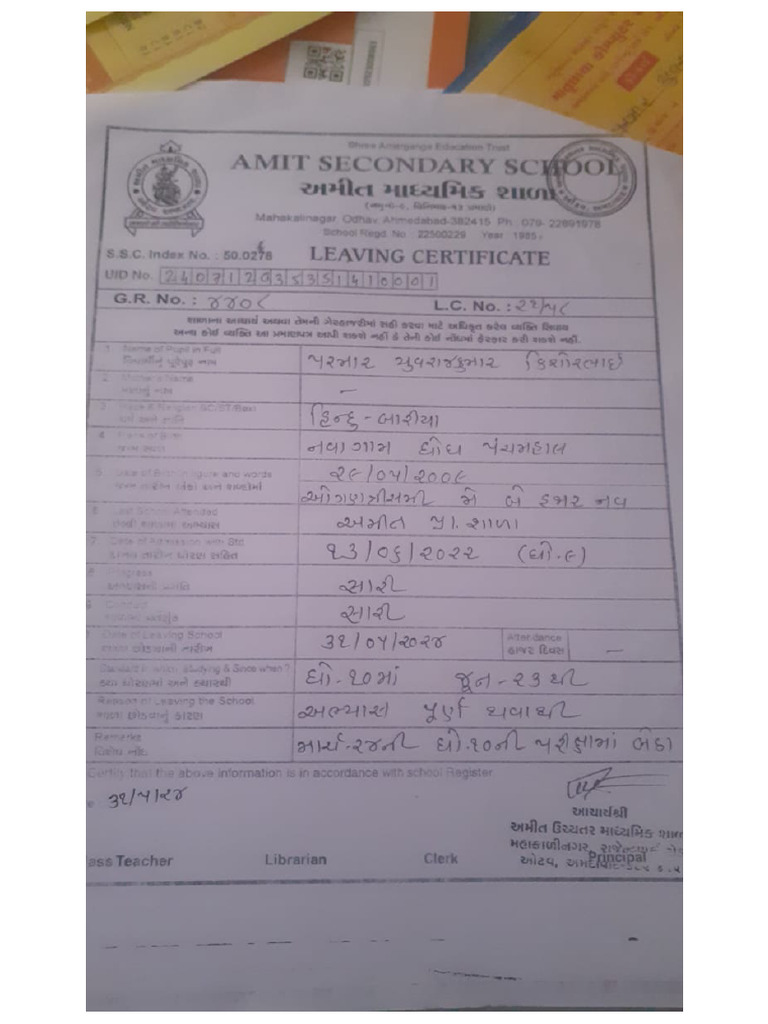 Shree Amarganga Education Trust
AMIT SECONDARY SCHOOL
અમીત માધ્યમિક શાળા
Mahakalinagar, Odhav, Ahmedabad-382415 Ph.: 079- 22891978
School Regd. No : 22500229 Year 1985
S.S.C. Index No. : 50.0276
LEAVING CERTIFICATE
UID No. 24071203535141 0001
G.R. No. : ૪૪૦૮ L.C. No. : ૨૧/૫૮
શાળાના આચાર્ય અથવા તેમની ગેરહાજરીમાં સહી કરવા માટે અધિકૃત કરેલ વ્યક્તિ સિવાય
અન્ય કોઈ વ્યક્તિ આ પ્રમાણપત્ર આપી શકશે નહીં કે તેની કોઈ નોંધમાં ફેરફાર કરી શકશે નહીં.
1 Name of Pupil in Full
વિદ્યાર્થીનું પૂરેપૂરું નામ
પરમાર યુવરાજકુમાર કિશોરભાઈ
2 Mother's Name
માતાનું નામ
–
3
હિન્દુ - બારીયા
4 Place of Birth
જન્મ સ્થળ
નવાગામ ઘોઘ પંચમહાલ
5 Date of Birth in figure and words
જન્મ તારીખ આંકડા અને શબ્દોમાં
૨૯/૦૫/૨૦૦૯
ઓગણત્રીસમી મે બે હજાર નવ
6 Last School Attended
અમીત પ્રા. શાળા
7 Date of Admission with Std.
દાખલ તારીખ ધોરણ સહિત
૧૩/૦૬/૨૦૨૨ (ધો.૯)
8 Progress
સારી
9 Conduct
સારી
Date of Leaving School
શાળા છોડવાની તારીખ
૩૧/૦૫/૨૦૨૪
Attendance
હાજર દિવસ
–
Standard in which studying & Since when ?
કયા ધોરણમાં અને ક્યારથી
ધો-૧૦માં જૂન-૨૩થી
Reason of Leaving the School
શાળા છોડવાનું કારણ
અભ્યાસ પૂર્ણ થવાથી
Remarks
વિશેષ નોંધ
માર્ચ-૨૪ની ધો.૧૦ની પરીક્ષામાં બેઠા
Certify that the above information is in accordance with school Register
૩૧/૫/૨૪
આચાર્યશ્રી
અમીત ઉચ્ચતર માધ્યમિક શાળ
મહાકાળીનગર,
ઓઢવ, અમદાવાદ
ass Teacher Librarian Clerk Principal